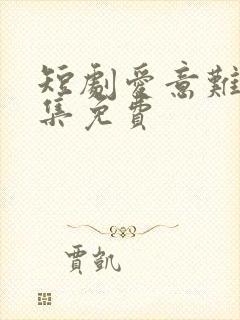 短劇愛意難
集免費
賈凱